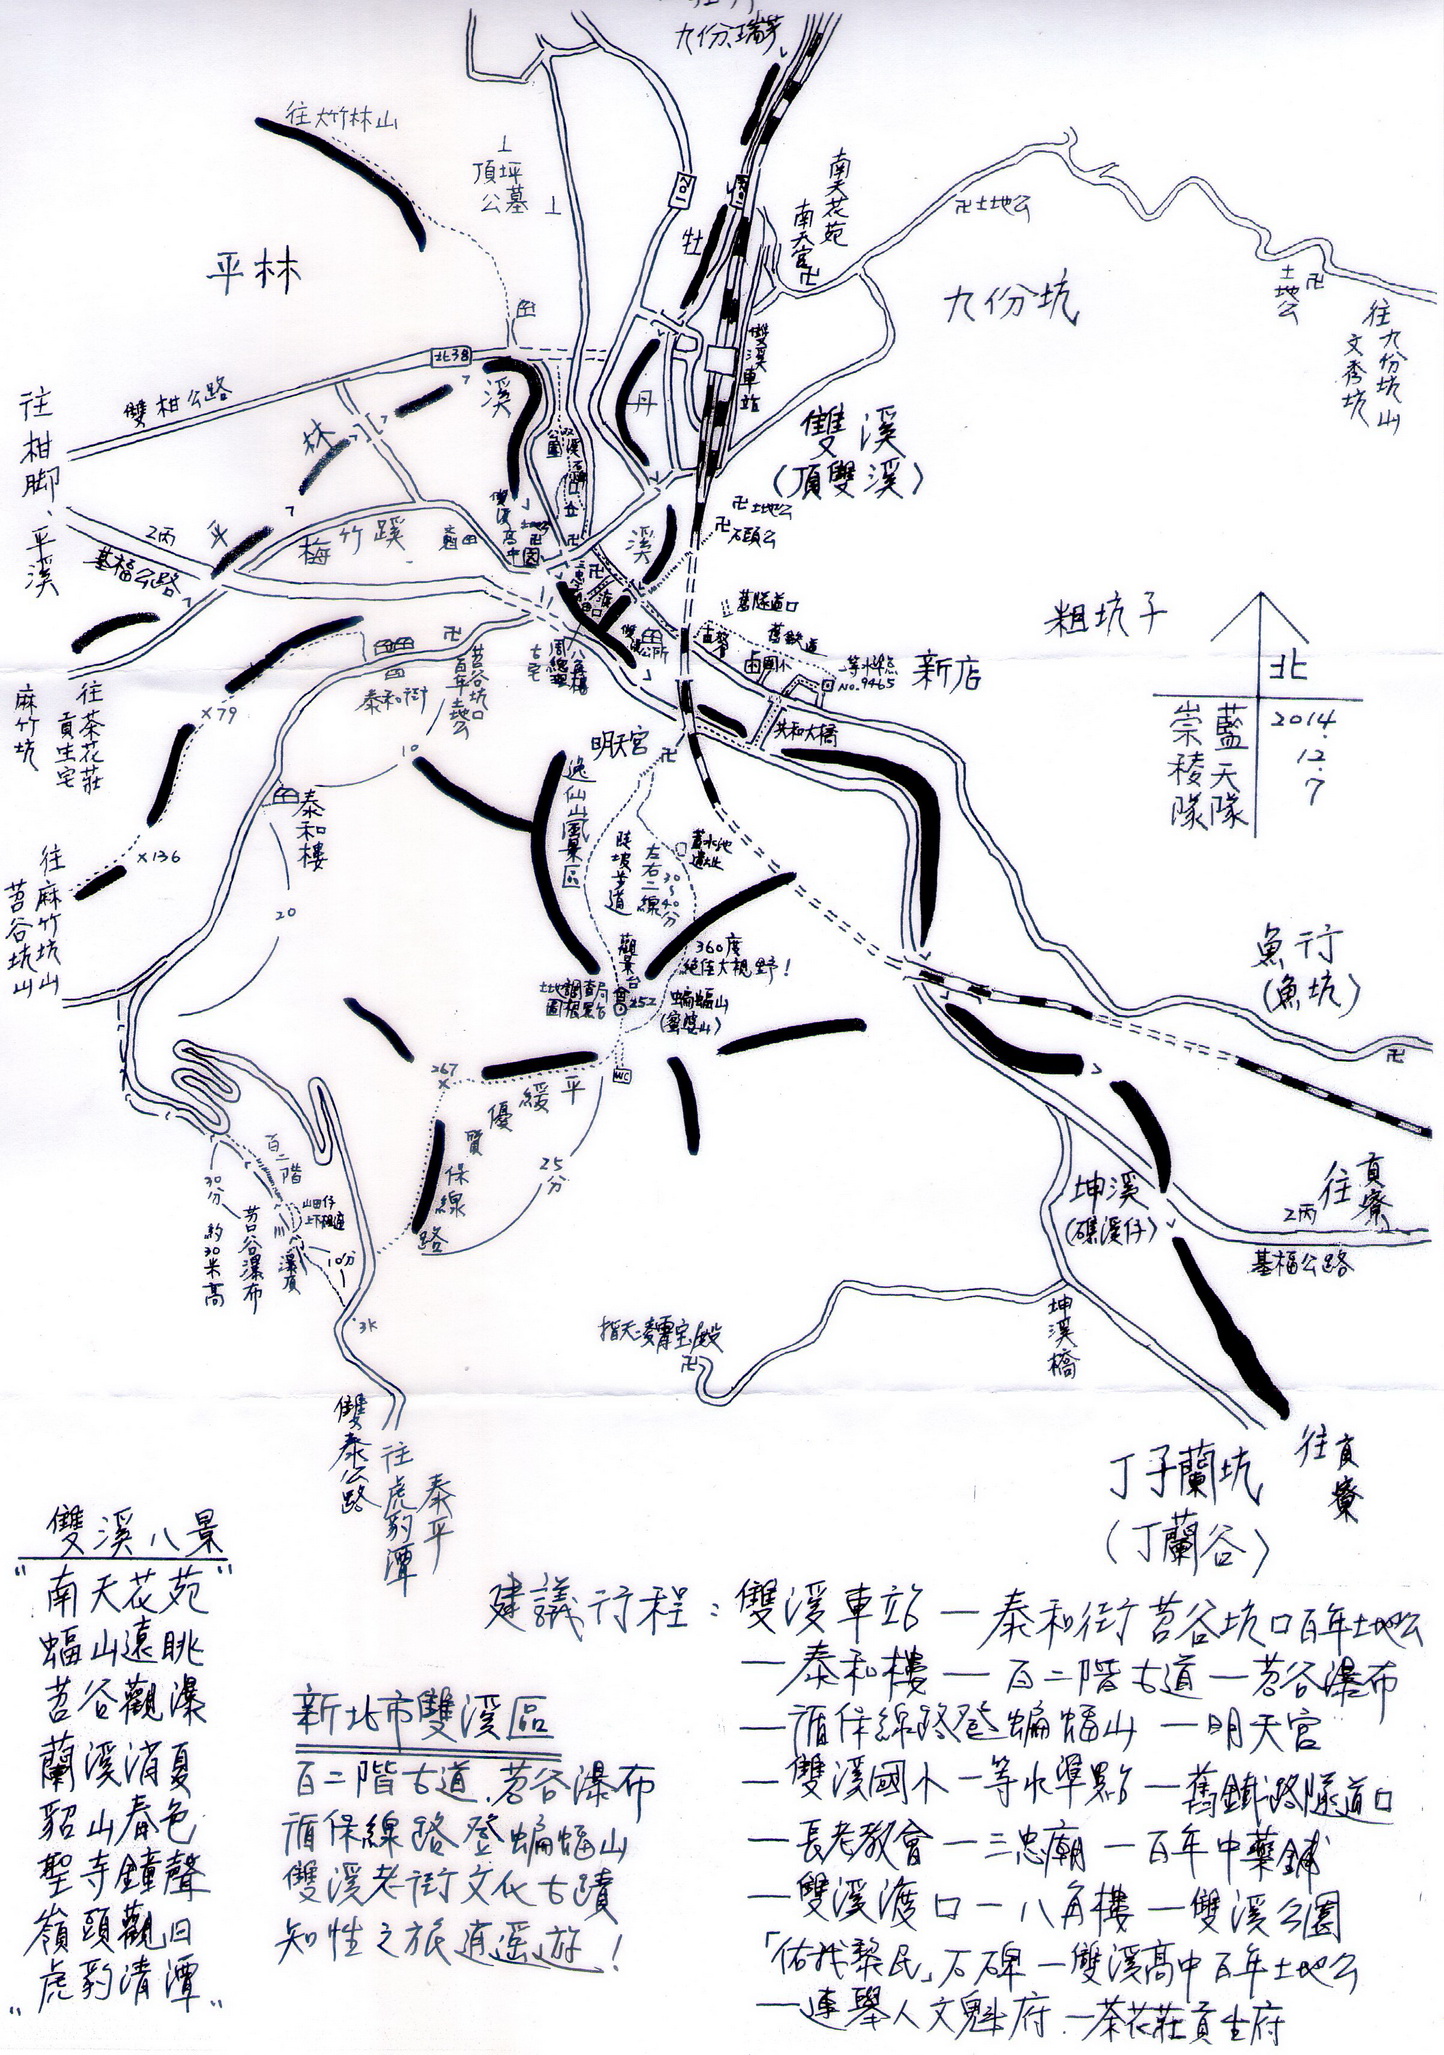 九份、瑞芳
往大竹林山
頂坪
公墓
102
牡
南天花苑
南天宮
卍土地公
平林
九份坑
土地公
卍
往九份坑山
文秀坑
北38
雙柑公路
往柑腳、平溪
林
溪
丹
雙溪車站
雙溪
(頂雙溪)
公園
雙溪高中
卍土地公
卍石頭公
2丙
基福公路
平
梅竹蹊
溪
舊隧道口
舊鐵道
粗坑子
北
2014.12.7
藍天隊
崇稜隊
新店
一等水準點
NO.9465
國小
共和大橋
八角樓
周總理
古宅
泰和街
苕谷坑口
百年土地公
麻竹坑
往茶花莊
貢生宅
×79
10
明天宮
卍
逸仙山風景區
陡坡步道
左右二線
30~40分
蓄水池
遺址
泰和樓
×136
往麻竹坑山
苕谷坑山
20
觀景台
360度
絕佳大視野!
土地調查局
圖根點
252
蝙蝠山
(蜜婆山)
WC
魚行
(魚坑)
卍
267
×
平緩優質保線路
25分
百二階
30分
山田仔
上下粗遶
苕谷瀑布
約30米高
瀑頂
10分
3K
坤溪
(礁溪仔)
往貢寮
2丙
基福公路
指天凌霄宝殿
卍
坤溪橋
雙泰公路
往虎豹潭
泰平
丁子蘭坑
(丁蘭谷)
往貢寮
雙溪八景
"南天花苑"
蝠山遠眺
苕谷觀瀑
蘭溪消夏
貂山春色
聖寺鐘聲
嶺頭觀日
"虎豹清潭"
新北市雙溪區
百二階古道.苕谷瀑布
循保線路登蝙蝠山
雙溪老街文化古蹟
知性之旅逍遥遊!
建議行程:雙溪車站—泰和街苕谷坑口百年土地公
—泰和樓—百二階古道—苕谷瀑布
—循保線路登蝙蝠山—明天宮
—雙溪國小—一等水準點—舊鐵路隧道口
—長老教會—三忠廟—百年中藥鋪
—雙溪渡口—八角樓—雙溪公園
「佑我黎民」石碑—雙溪高中百年土地公
—連舉人文魁府—茶花莊貢生府